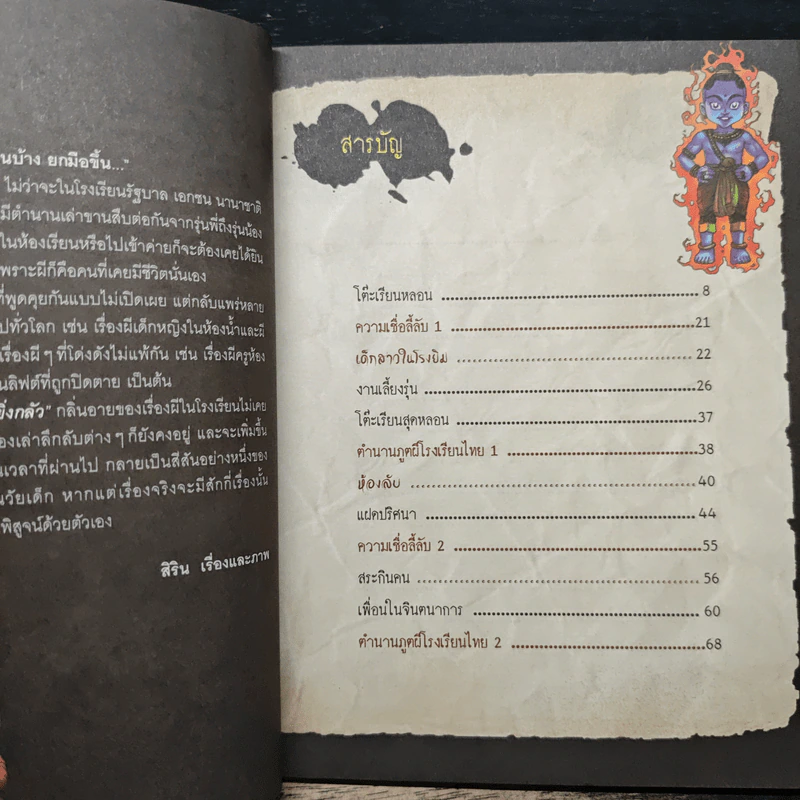 นบ้าง ยกมือขึ้น..."
ไม่ว่าจะในโรงเรียนรัฐบาล เอกชน นานาชาติ
มีตำนานเล่าขานสืบต่อกันจากรุ่นพี่ถึงรุ่นน้อง
ในห้องเรียนหรือไปเข้าค่ายก็จะต้องเคยได้ยิน
พราะผีก็คือคนที่เคยมีชีวิตนั่นเอง
ที่พูดคุยกันแบบไม่เปิดเผย แต่กลับแพร่หลาย
ปทั่วโลก เช่น เรื่องผีเด็กหญิงในห้องน้ำและผี
เรื่องผีๆ ที่โด่งดังไม่แพ้กัน เช่น เรื่องผีครูห้อง
นลิฟต์ที่ถูกปิดตาย เป็นต้น
ยิ่งกลัว" กลิ่นอายของเรื่องผีในโรงเรียนไม่เคย
องเล่าลึกลับต่างๆ ก็ยังคงอยู่ และจะเพิ่มขึ้น
นเวลาที่ผ่านไป กลายเป็นสีสันอย่างหนึ่งของ
นวัยเด็ก หากแต่เรื่องจริงจะมีสักกี่เรื่องนั้น
พิสูจน์ด้วยตัวเอง
สิริน เรื่องและภาพ
สารบัญ
โต๊ะเรียนหลอน 8
ความเชื่อลี้ลับ 1 21
เด็กลาวในโรงยิม 22
งานเลี้ยงรุ่น 26
โต๊ะเรียนสุดหลอน 37
ตำนานภูตผีโรงเรียนไทย 1 38
ห้องลับ 40
แฝดปริศนา 44
ความเชื่อลี้ลับ 2 55
สระกินคน 56
เพื่อนในจินตนาการ 60
ตำนานภูตผีโรงเรียนไทย 2 68